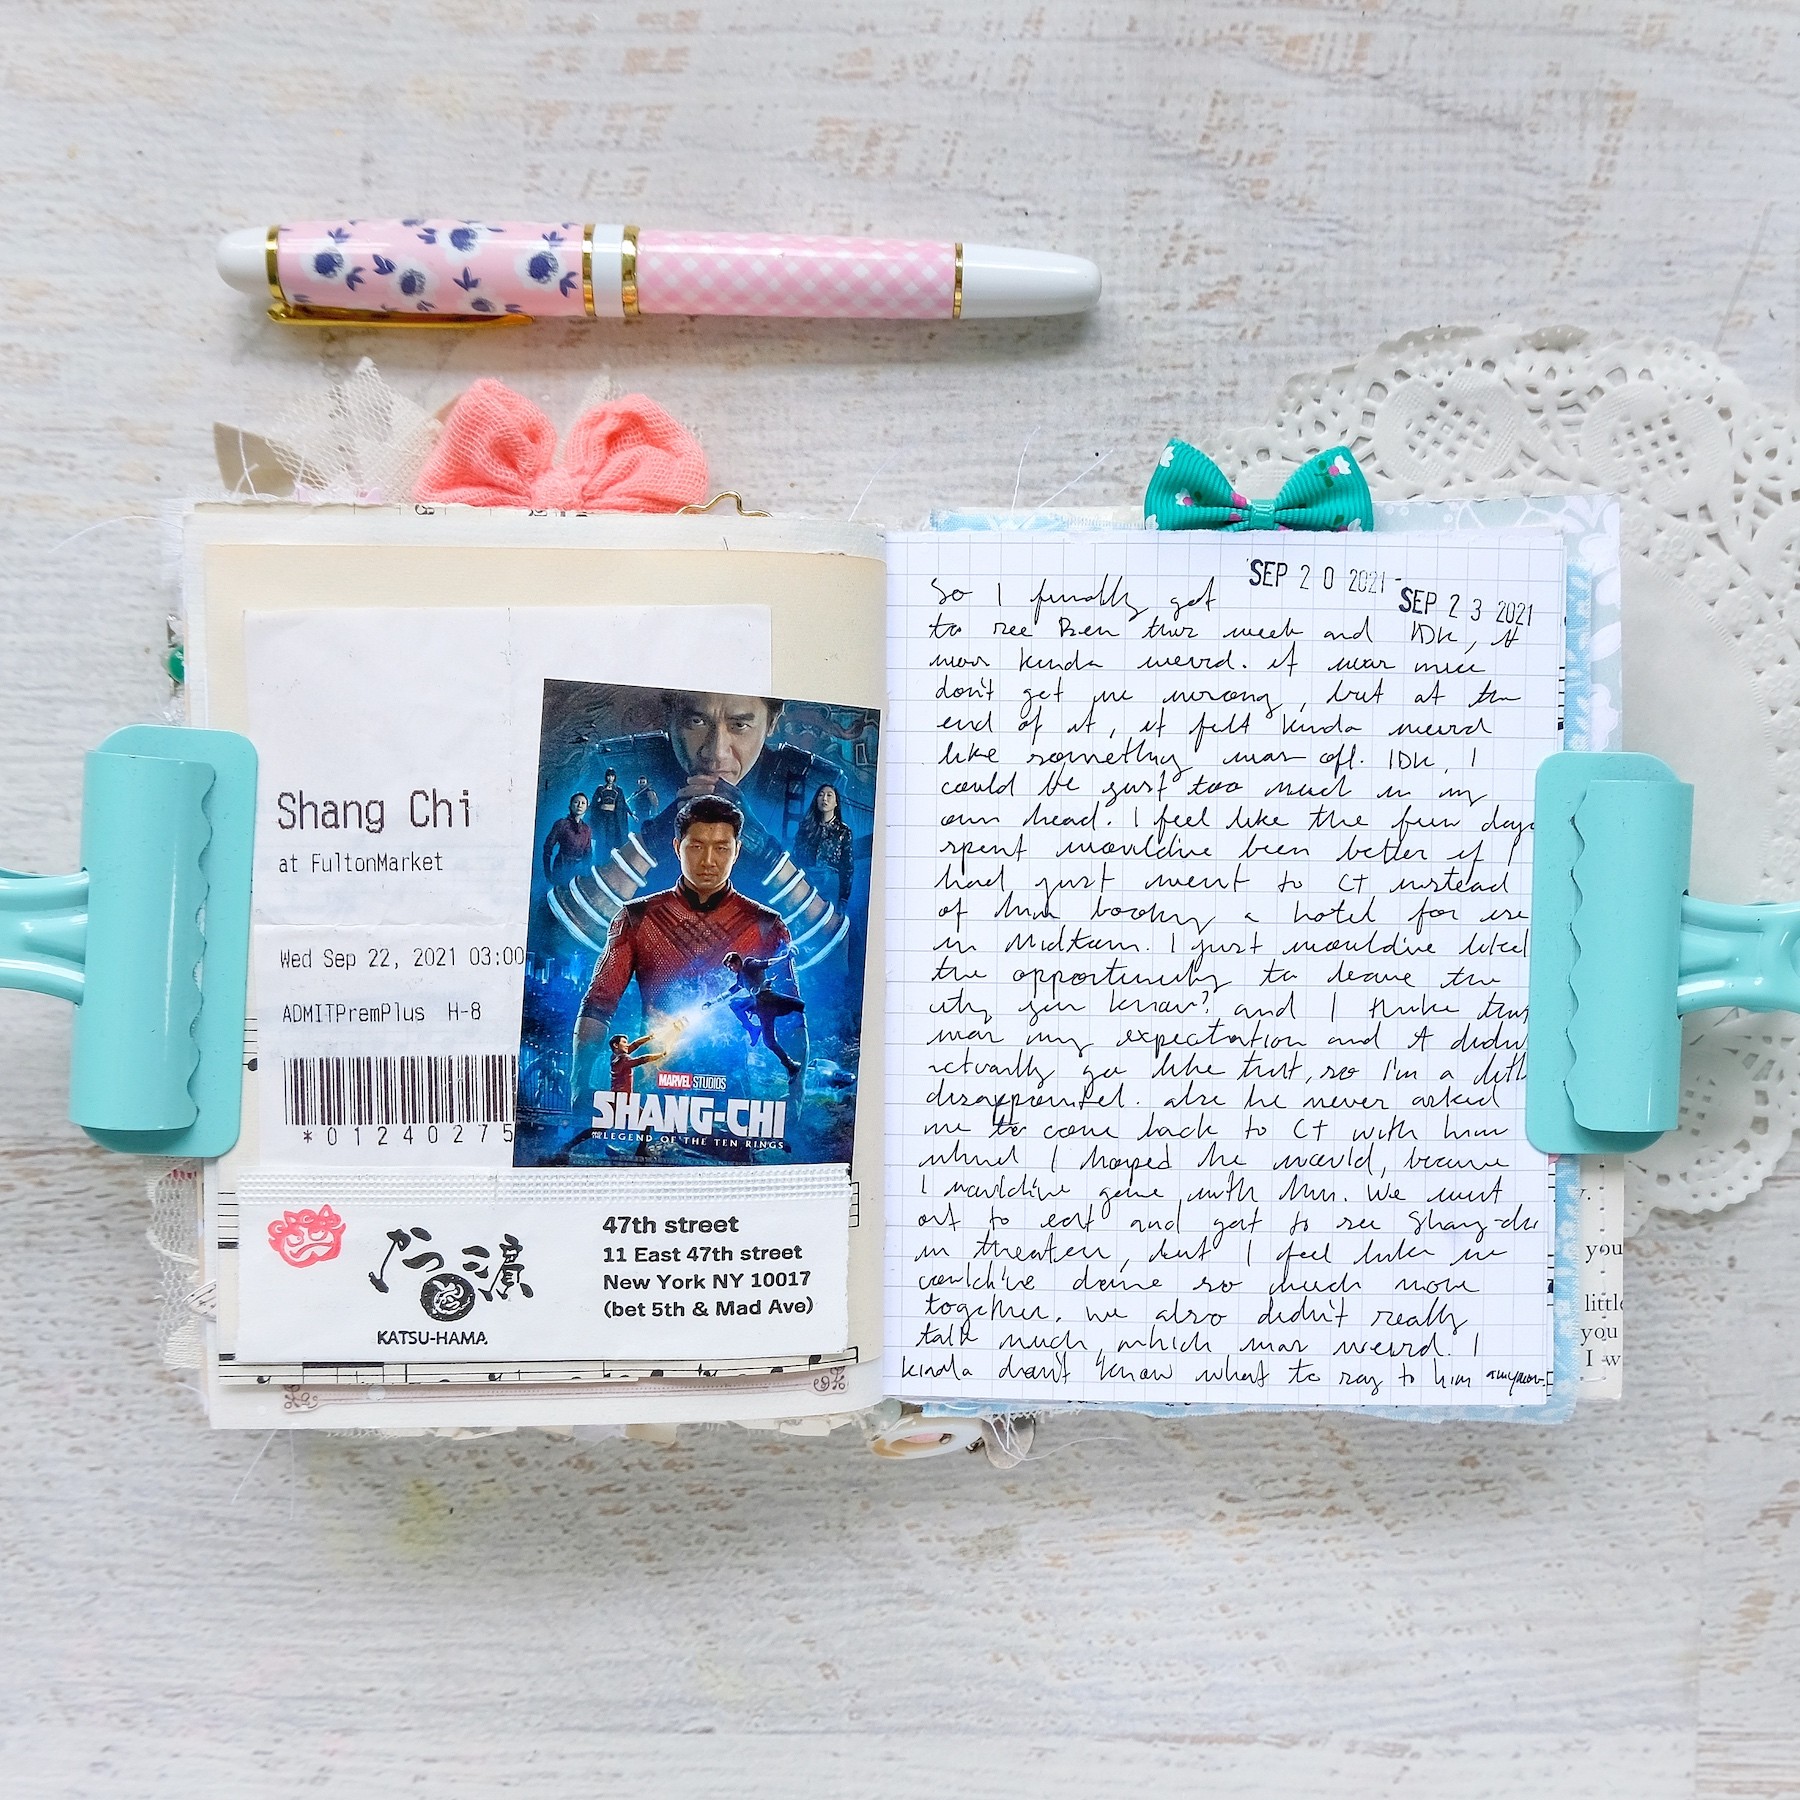 Shang Chi
at FultonMarket
Wed Sep 22, 2021 03:00
ADMITPremPlus H-8
*01240275
MARVEL STUDIOS
SHANG-CHI
AND THE LEGEND OF THE TEN RINGS
かつ濱
KATSU-HAMA
47th street
11 East 47th street
New York NY 10017
(bet 5th & Mad Ave)
SEP 20 2021-
SEP 23 2021
So I finally got
to see Ben this week and IDK, it
was kinda weird. it was nice
don't get me wrong, but at the
end of it, it felt kinda weird
like something was off. IDK, I
could be just too much in my
own head. I feel like the few days
spent would've been better if I
had just went to CT instead
of him booking a hotel for use
in Midtown. I just would've liked
the opportunity to leave the
city you know? and I think that
was my expectation and it didn
actually go like that, so I'm a little
disappointed. also he never asked
me to come back to CT with him
which I hoped he would, because
I would've gone with him. We went
out to eat and got to see Shang-chi
in theaters, but I feel like we
could've done so much more
together. We also didn't really
talk much, which was weird. I
kinda don't know what to say to him anymore.
you
little
you
I w